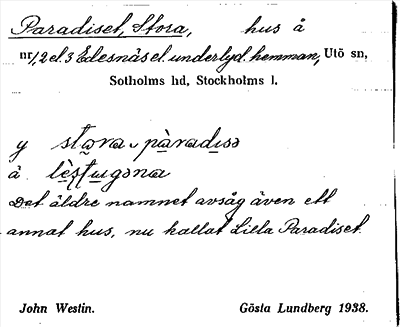 Paradiset, Stora, hus å
nr 1, 2 el. 3 Edesnäs el. underlyd. hemman, Utö sn,
Sotholms hd, Stockholms l.
y stora paradisə
ä lèstugəna
Det äldre namnet avsåg även ett
annat hus, nu kallat Lilla Paradiset.
John Westin. Gösta Lundberg 1938.